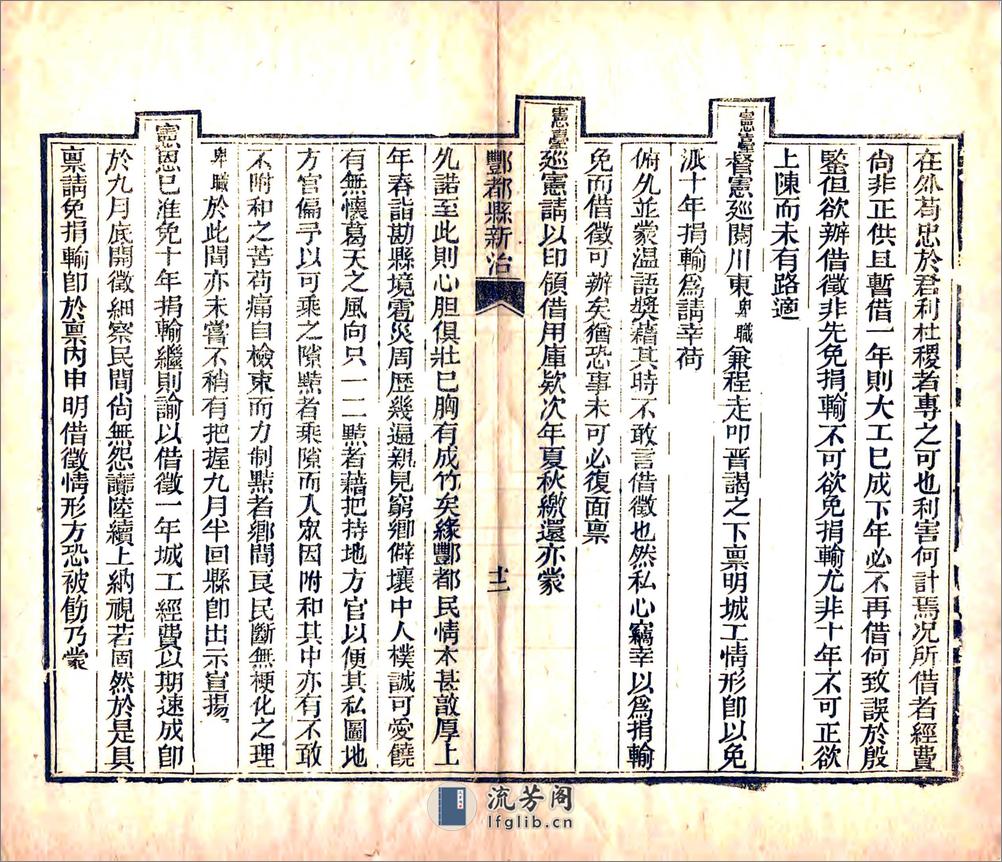 在外苟忠於君利社稷者專之可也利害何計焉况所借者經費
尚非正供且暫借一年則大工已成下年必不再借何致誤於殷
鑒但欲辦借徵非先免捐輸不可欲免捐輸尤非十年不可正欲
上陳而未有路適
憲臺督憲巡閱川東卑職兼程走叩晋謁之下禀明城工情形卽以免
派十年捐輸爲請幸荷
俯允並蒙温語奬藉其時不敢言借徵也然私心竊幸以爲捐輸
免而借徵可辦矣猶恐事未可必復面禀
憲臺廵憲請以印領借用庫欵次年夏秋繳還亦蒙
酆都縣新治
十二
允諾至此則心胆俱壯已胸有成竹矣緣酆都民情本甚敦厚上
年春詣勘縣境雹災周歴幾遍親見窮鄉僻壤中人樸誠可愛饒
有無懷葛天之風向只一二黠者藉把持地方官以便其私圖地
方官偏予以可乘之隙黠者乘隙而入衆因附和其中亦有不敢
不附和之苦苟痛自檢束而力制黠者鄉間良民斷無梗化之理
卑職於此間亦未嘗不稍有把握九月半回縣卽出示宣揚
憲恩已准免十年捐輸繼則諭以借徵一年城工經費以期速成卽
於九月底開徵細察民間尚無怨讟陸續上納視若固然於是具
禀請免捐輸卽於禀内申明借徵情形方恐被飭乃蒙
流芳阁
lfglib.cn